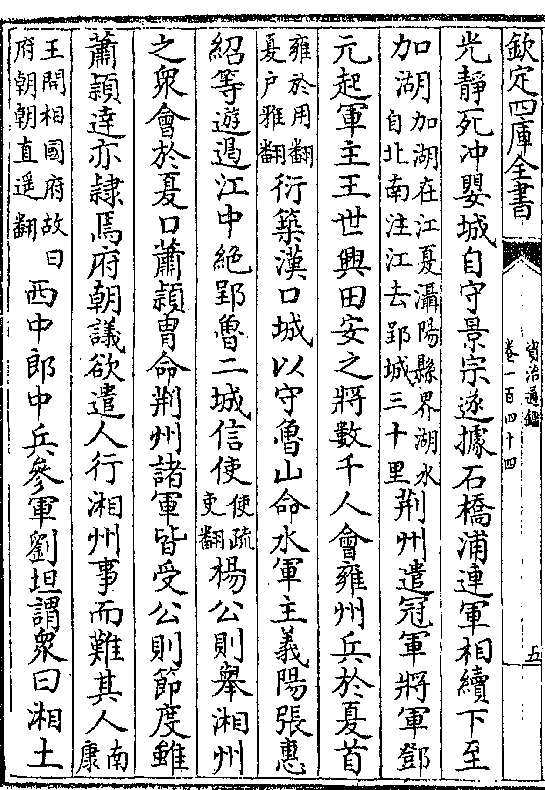 欽定四庫全書
資治通鑑
卷一百四十四
五
光靜死冲嬰城自守景宗遂據石橋浦連軍相續下至
加湖加湖在江夏灄陽縣界湖水自北南注江去郢城三十里荆州遣冠軍將軍鄧
元起軍主王世興田安之將數千人會雍州兵於夏首
雍於用翻夏户雅翻衍築漢口城以守魯山命水軍主義陽張惠
紹等遊遏江中絶郢魯二城信使使疏吏翻楊公則舉湘州
之衆會於夏口蕭穎胄命荆州諸軍皆受公則節度雖
蕭穎達亦隷焉府朝議欲遣人行湘州事而難其人南康
王開相國府故曰府朝朝直遥翻西中郎中兵參軍劉坦謂衆曰湘土